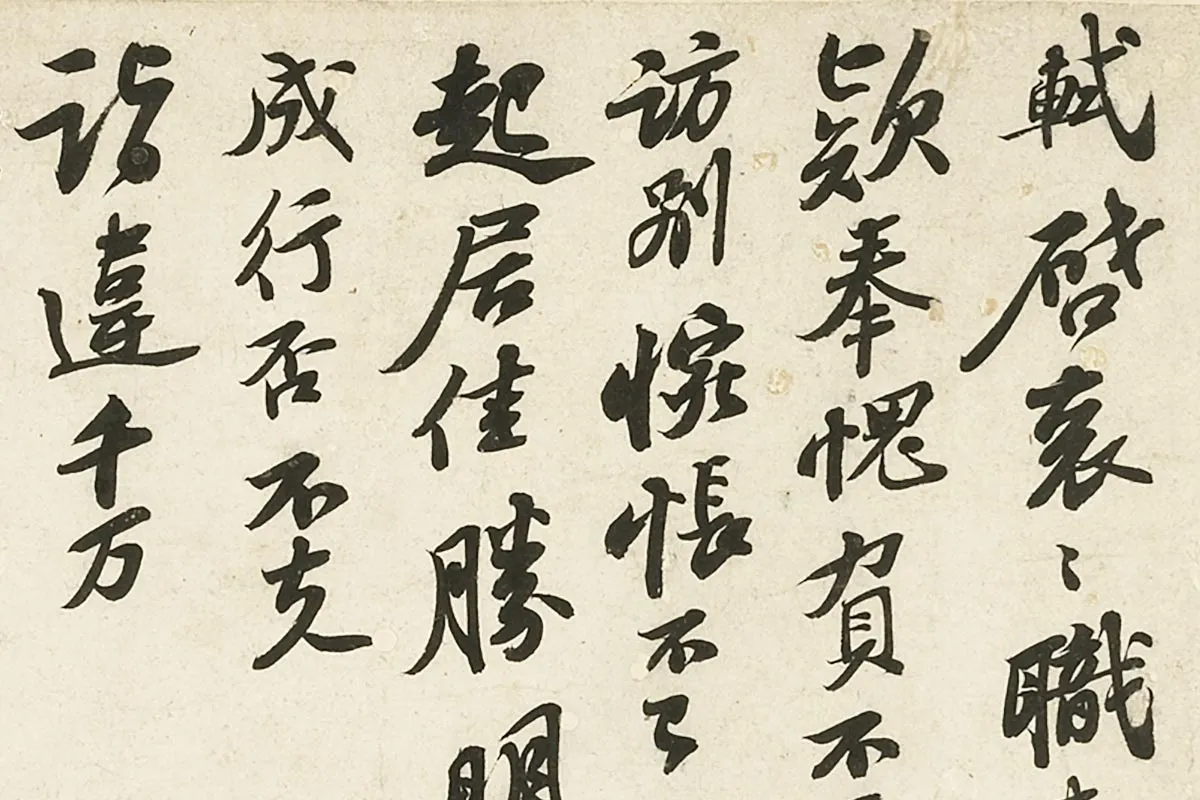 軾啓裒〻職
款奉愧負不
訪別惋悵不已
起居佳勝明
成行否不克
詣違千万